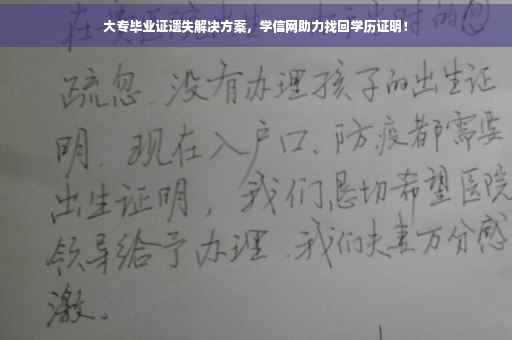 大专毕业证遗失解决方案，学信网助力找回学历证明！
疏忽.没有办理孩子的出生证
明.现在入户口、防疫都需要
出生证明，我们恳切希望医院
领导给予办理.我们夫妻万分感
激。